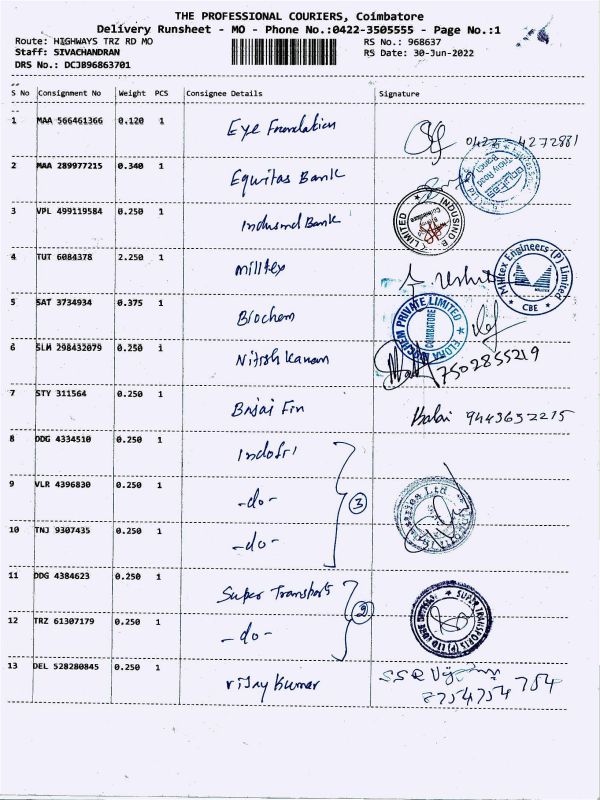 THE PROFESSIONAL COURIERS, Coimbatore
Delivery Runsheet - MO - Phone No.:0422-3505555 - Page No.:1
Route: HIGHWAYS TRZ RD MO RS No.: 968637
Staff: SIVACHANDRAN RS Date: 30-Jun-2022
DRS No.: DCJ896863701
S No Consignment No Weight PCS Consignee Details Signature
1 MAA 566461366 0.120 1 Eye Foundation 0422 4272881
2 MAA 289977215 0.340 1 Equitas Bank
3 VPL 499119584 0.250 1 Indusind Bank INDUSIND B LIMITED
4 TUT 6084378 2.250 1 milltex Milltex Engineers (P) Limited CBE
5 SAT 3734934 0.375 1 Biochem PRIVATE LIMITED COIMBATORE
6 SLM 298432079 0.250 1 Nitish Kannan 7502855219
7 STY 311564 0.250 1 Bajai Fin Kalai 9443652215
8 DDG 4334510 0.250 1 Indofri
9 VLR 4396830 0.250 1 -do- 3
10 TNJ 9307435 0.250 1 -do-
11 DDG 4384623 0.250 1 Super Transports SUPER TRANSPORTS (P) LTD
12 TRZ 61307179 0.250 1 -do- 2
13 DEL 528280845 0.250 1 Vijay Kumar 8754754 754